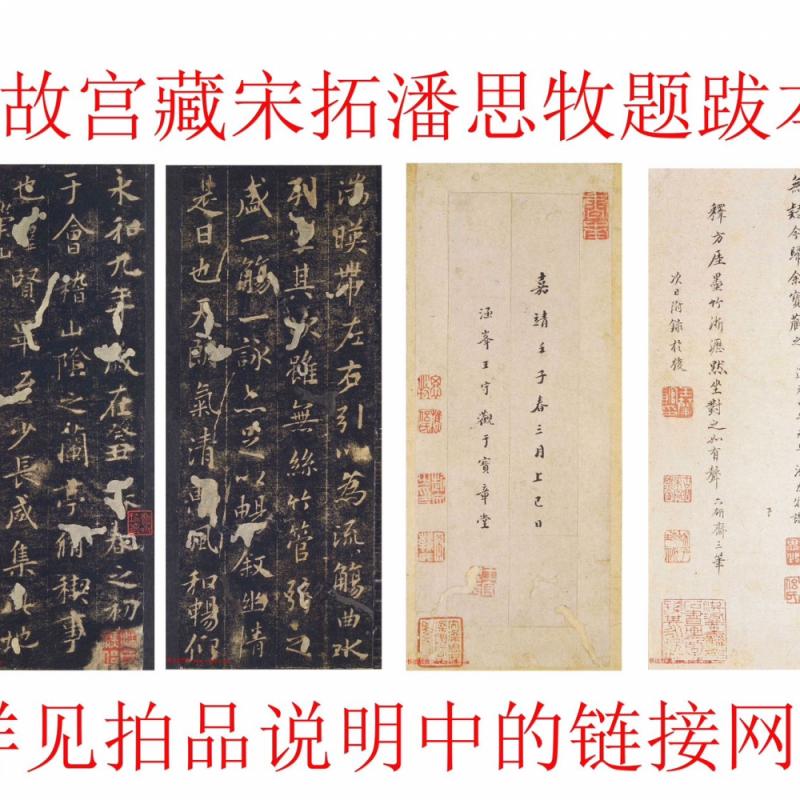 故宫藏宋拓潘思牧题跋本
永和九年歲在癸丑暮春之初
于會稽山陰之蘭亭脩禊事
也羣賢畢至少長咸集此地
湍暎帶左右引以為流觴曲水
列坐其次雖無絲竹管弦之
盛一觴一詠亦足以暢叙幽情
是日也天朗氣清惠風和暢仰
嘉靖壬子春三月上巳日
涵峯王守觀于寶章堂
無疑今歸余寶藏之
釋方厓墨竹淅瀝然坐對之如有聲 六研齋三筆
次日附錄於後
详见拍品说明中的链接网